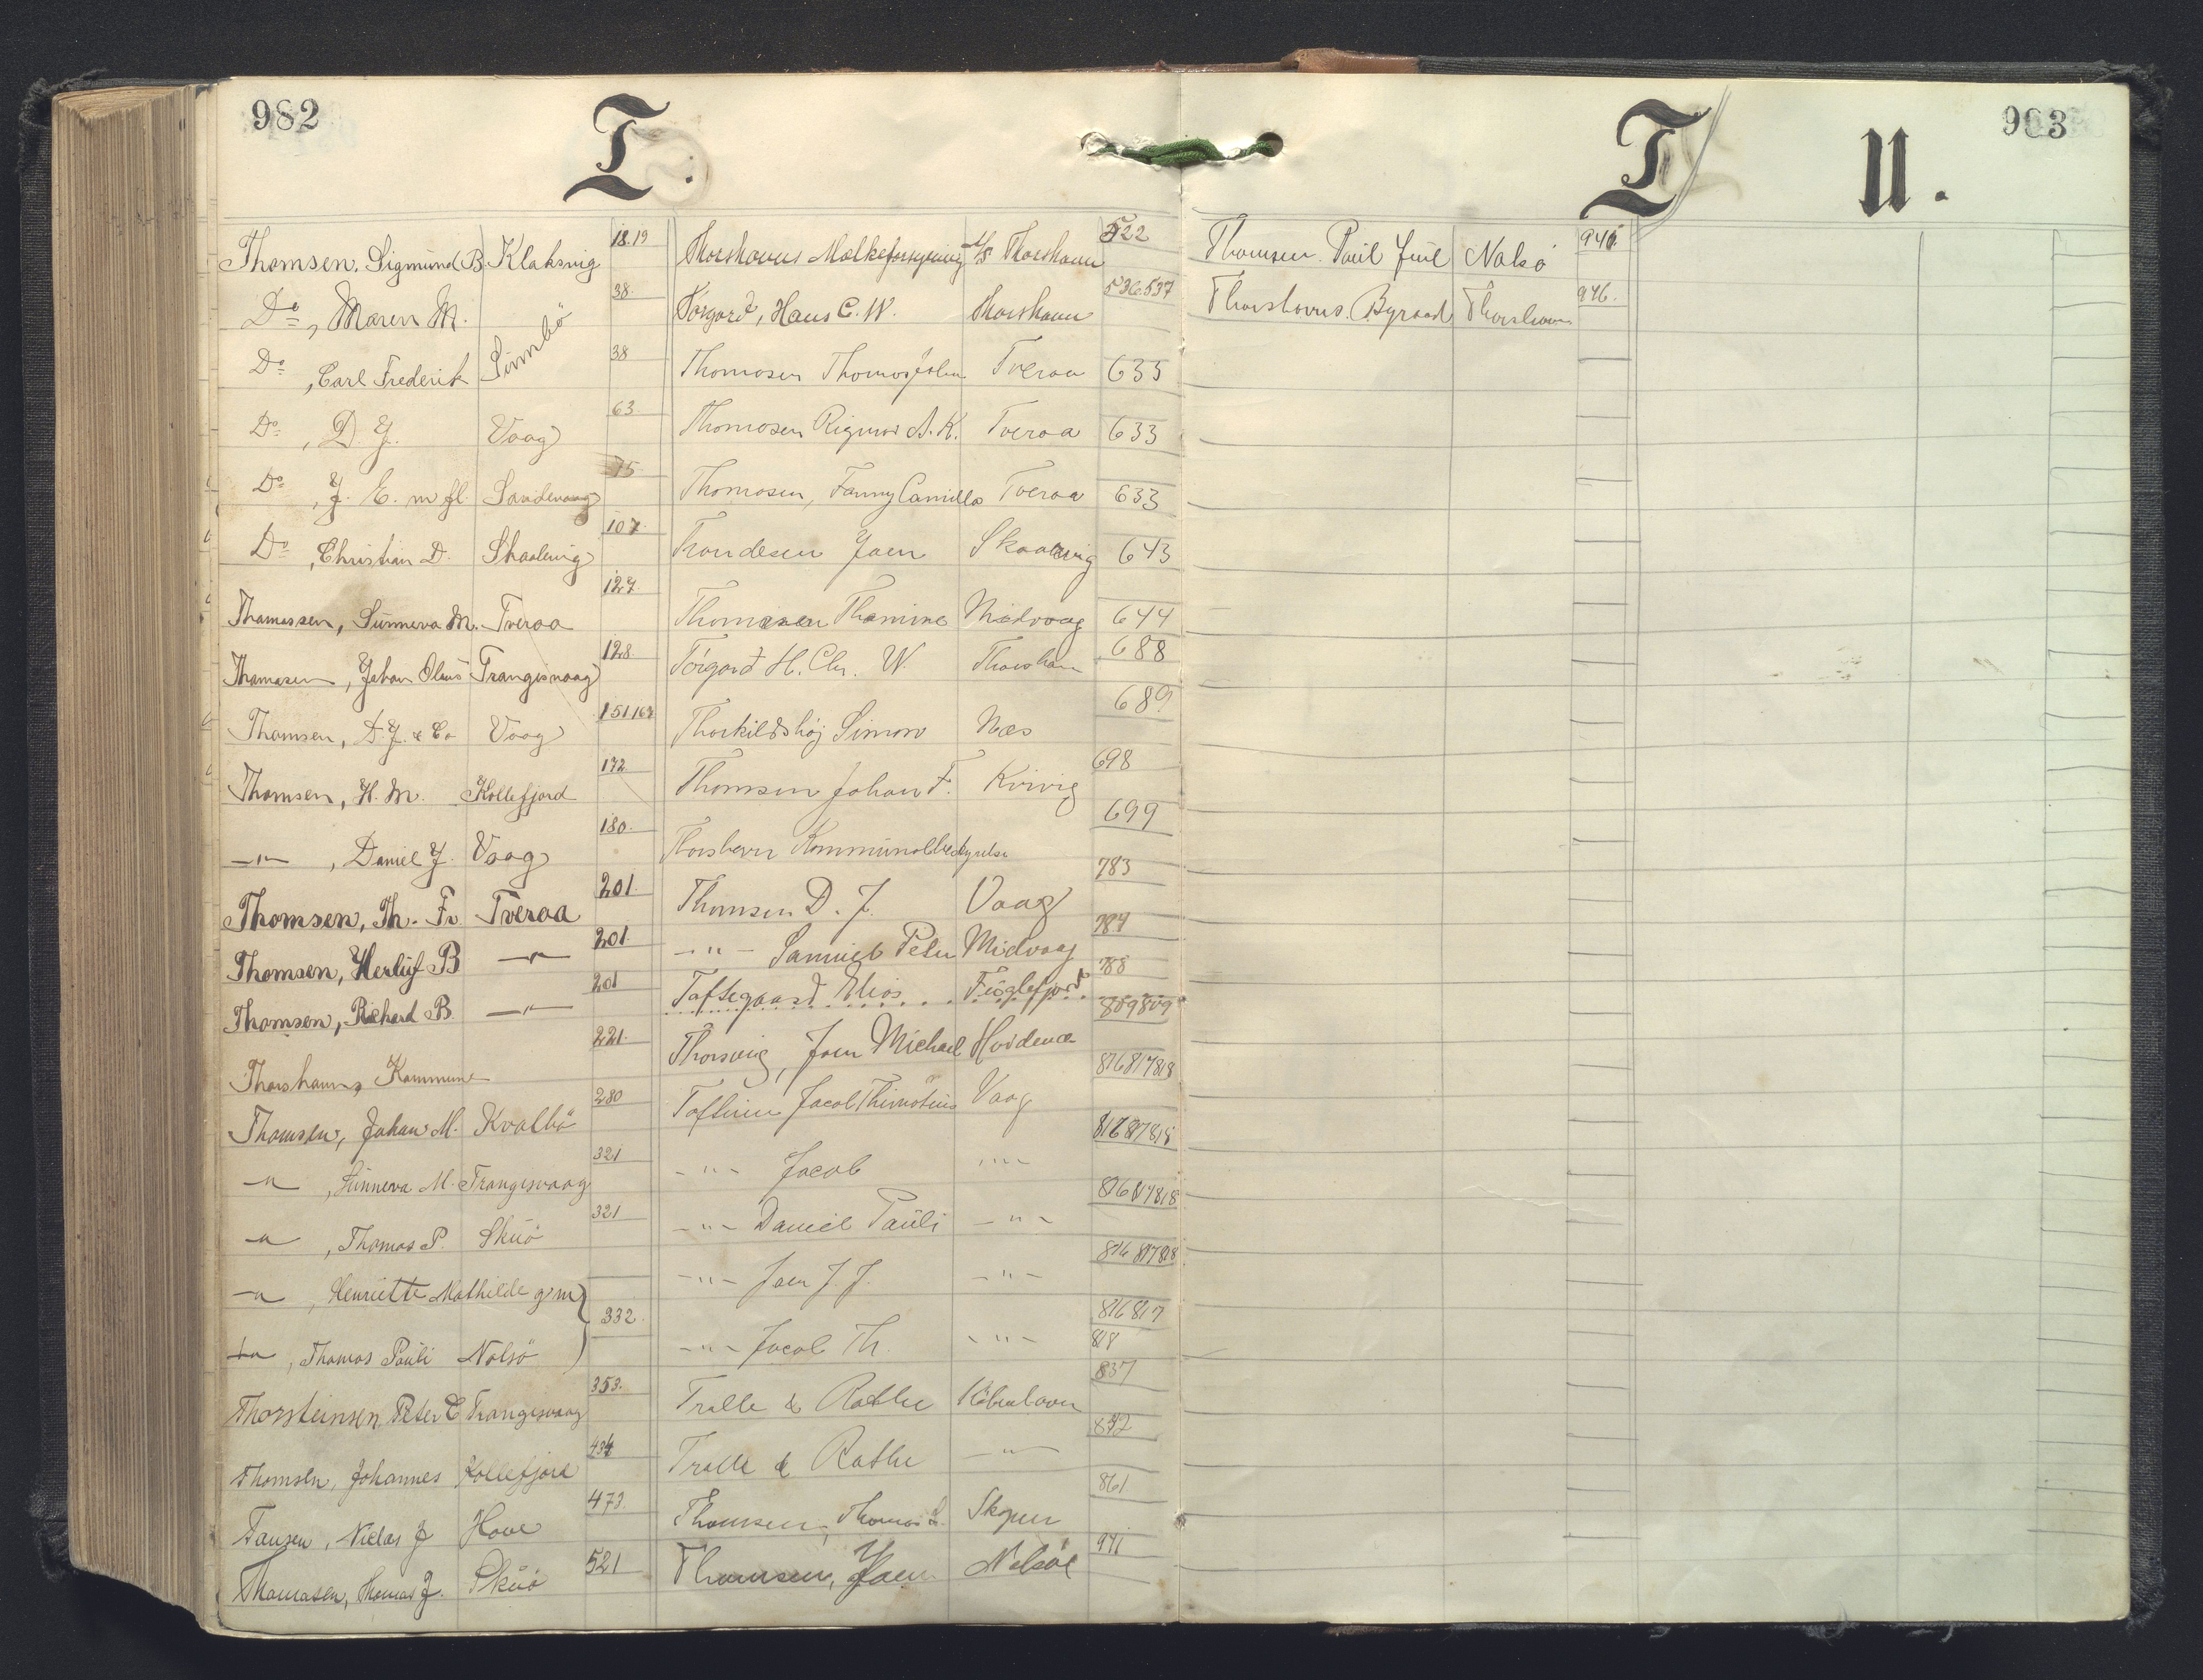 982
T.
Thomsen, Sigmund B. Klaksvig 18.19
Do, Maren M. Sumbö 38
Do, Carl Frederik 38
Do, D. J. Vaag 63
Do, J. E. m fl. Sandevaag 75
Do, Christian D. Skaalevig 107
Thomassen, Sunneva M. Tveraa 127
Thomasen, Johan Olaus Trangisvaag 128
Thomsen, D. J. & Co Vaag 151 167
Thomsen, H. M. Kollefjord 172
—"— , Daniel J. Vaag 180.
Thomsen, Th. Fr. Tveraa 201.
Thomsen, Herluf B —"— 201
Thomsen, Richard B. —"— 201
Thorshavns Kommune 221.
Thomsen, Johan M. Kvalbö 280
—"— , Sunneva M. Trangisvaag 321
—"— , Thomas P. Skuö 321
—"— , Henriette Mathilde g m
—"— , Thomas Pauli Nolsö 332.
Thorsteinsen Peter C Trangisvaag 353.
Thomsen, Johannes Kollefjord 434
Tausen, Niclas J Hove 473.
Thomasen, Thomas J. Skuö 521
Thorshavns Mælkeforsyning A/S Thorshavn 522
Torgard, Hans C. W. Thorshavn 536.537
Thomasen Thomas John Tveraa 633
Thomasen Rigmor A. K. Tveraa 633
Thomasen, Fanny Camilla Tveraa 633
Trondesen Joen Skaalevig 643
Thomasen Thomine Midvaag 644
Torgard H. Chr. W Thorshavn 688
Thorkildshøj Simon Næs 689
Thomsen Johan F. Kvivig 698
Thorshavn Kommunalbestyrelse 699
Thomsen D. J. Vaag 783
—"— Samuel Peter Midvaag 784
Toftegaard Elias Fuglefjord 788
Thorsvig, Joen Michael Hvidenæs 809 809
Toftum Jacob Thimotius Vaag 816 817 818
—"— Jacob —"— 816 817 818
—"— Daniel Pauli —"— 816 817 818
—"— Joen J. J. —"— 816 817 818
—"— Jacob Th. —"— 816 817
818
Tralle & Rothe Köbenhavn 837
Tralle & Rothe —"— 842
Thomsen, Thomas S. Skopun 861
Thomsen, Joen Nolsöe 941
983
T
U.
Thomsen. Poul Juul Nolsö 946
Thorshavns. Byraad Thorshavn 946.